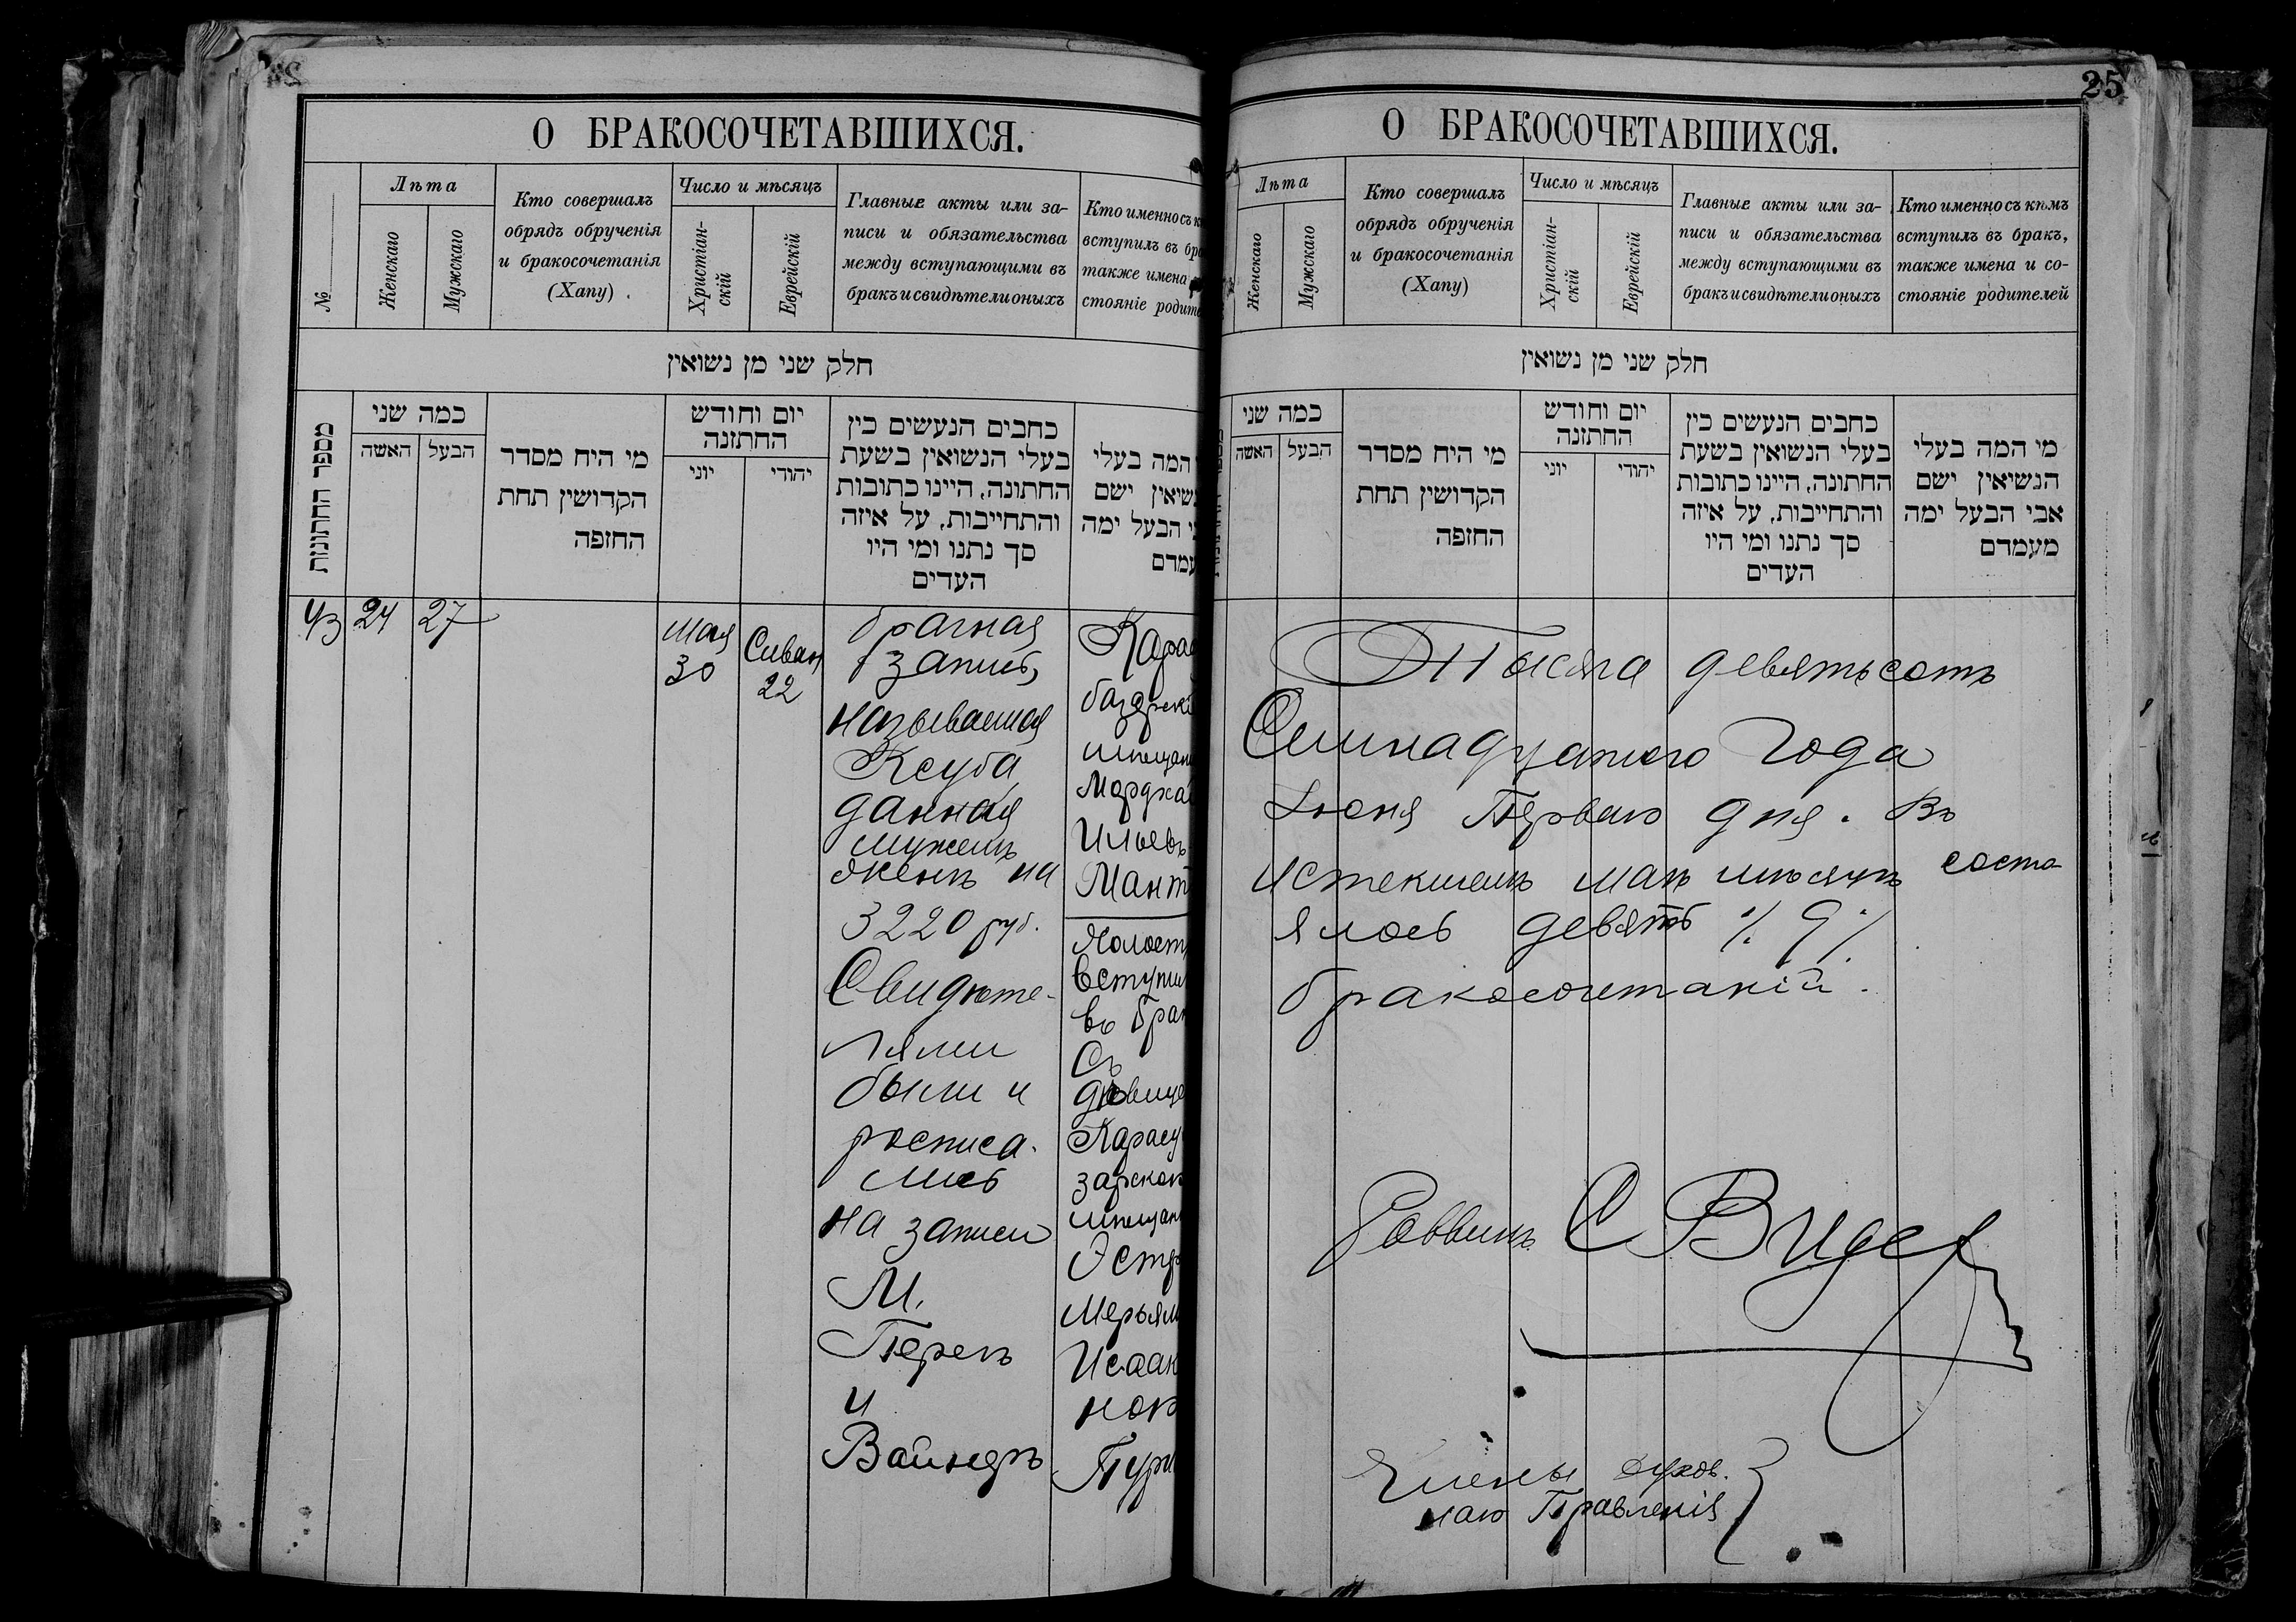 О БРАКОСОЧЕТАВШИХСЯ.
№
Лѣта
Женскаго
Мужскаго
Кто совершалъ
обрядъ обрученія
и бракосочетанія
(Хапу)
Число и мѣсяцъ
Христіан-
скій
Еврейскій
Главные акты или за-
писи и обязательства
между вступающими въ
бракъ и свидѣтели оныхъ
Кто именно съ к
вступилъ въ бра
также имена
стояніе родите
חלק שני מן נשואין
מספר החתונות
כמה שני
האשה
הבעל
מי היח מסדר
הקדושין תחת
החופה
יום וחודש
החתונה
יוני
יהודי
כתבים הנעשים בין
בעלי הנשואין בשעת
החתונה, היינו כתובות
והתחייבות, על איזה
סך נתנו ומי היו
העדים
המה בעלי
נשיאין ישם
י הבעל ימה
עמדם
43
24
27
Мая
30
Сиван
22
брачная
запись,
называемая
Ксуба,
данная
мужемъ
женѣ на
3220 руб.
Свидѣте-
лями
были и
росписа-
лись
на записи
М.
Перель
и
Вайнеръ
Карасу
базарскі
мѣщани
Мордха
Ильевъ
Мант
Холост
вступил
въ брак
Съ
дѣвице
Карасу
зарской
мѣщан
Эстр
Мерьям
Исаак
ной
Пури
25
О БРАКОСОЧЕТАВШИХСЯ.
Лѣта
Женскаго
Мужскаго
Кто совершалъ
обрядъ обрученія
и бракосочетанія
(Хапу)
Число и мѣсяцъ
Христіан-
скій
Еврейскій
Главные акты или за-
писи и обязательства
между вступающими въ
бракъ и свидѣтели оныхъ
Кто именно съ кѣмъ
вступилъ въ бракъ,
также имена и со-
стояніе родителей
חלק שני מן נשואין
כמה שני
האשה
הבעל
מי היח מסדר
הקדושין תחת
החופה
יום וחודש
החתונה
יוני
יהודי
כתבים הנעשים בין
בעלי הנשואין בשעת
החתונה, היינו כתובות
והתחייבות, על איזה
סך נתנו ומי היו
העדים
מי המה בעלי
הנשיאין ישם
אבי הבעל ימה
מעמדם
Тысяча девятьсотъ
Семнадцатого года
Іюня Перваго дня. Въ
истекшемъ маѣ мѣсяцѣ состо
ялось девять /. 9 ./
бракосочетаній.
Раввинъ С Видер
Члены духов.
наго Правленія